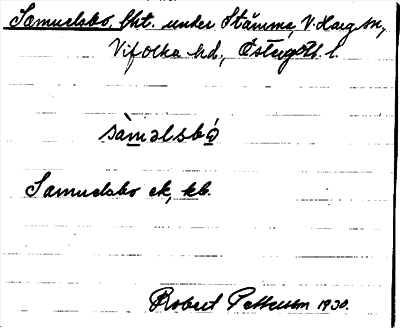 Samuelsbo, lht. under Stämma, V. Harg sn,
Vifolka hd, Östergötl. l.
sàmǝlsbó
Samuelsbo ek, kb.
Robert Pettersson 1930.